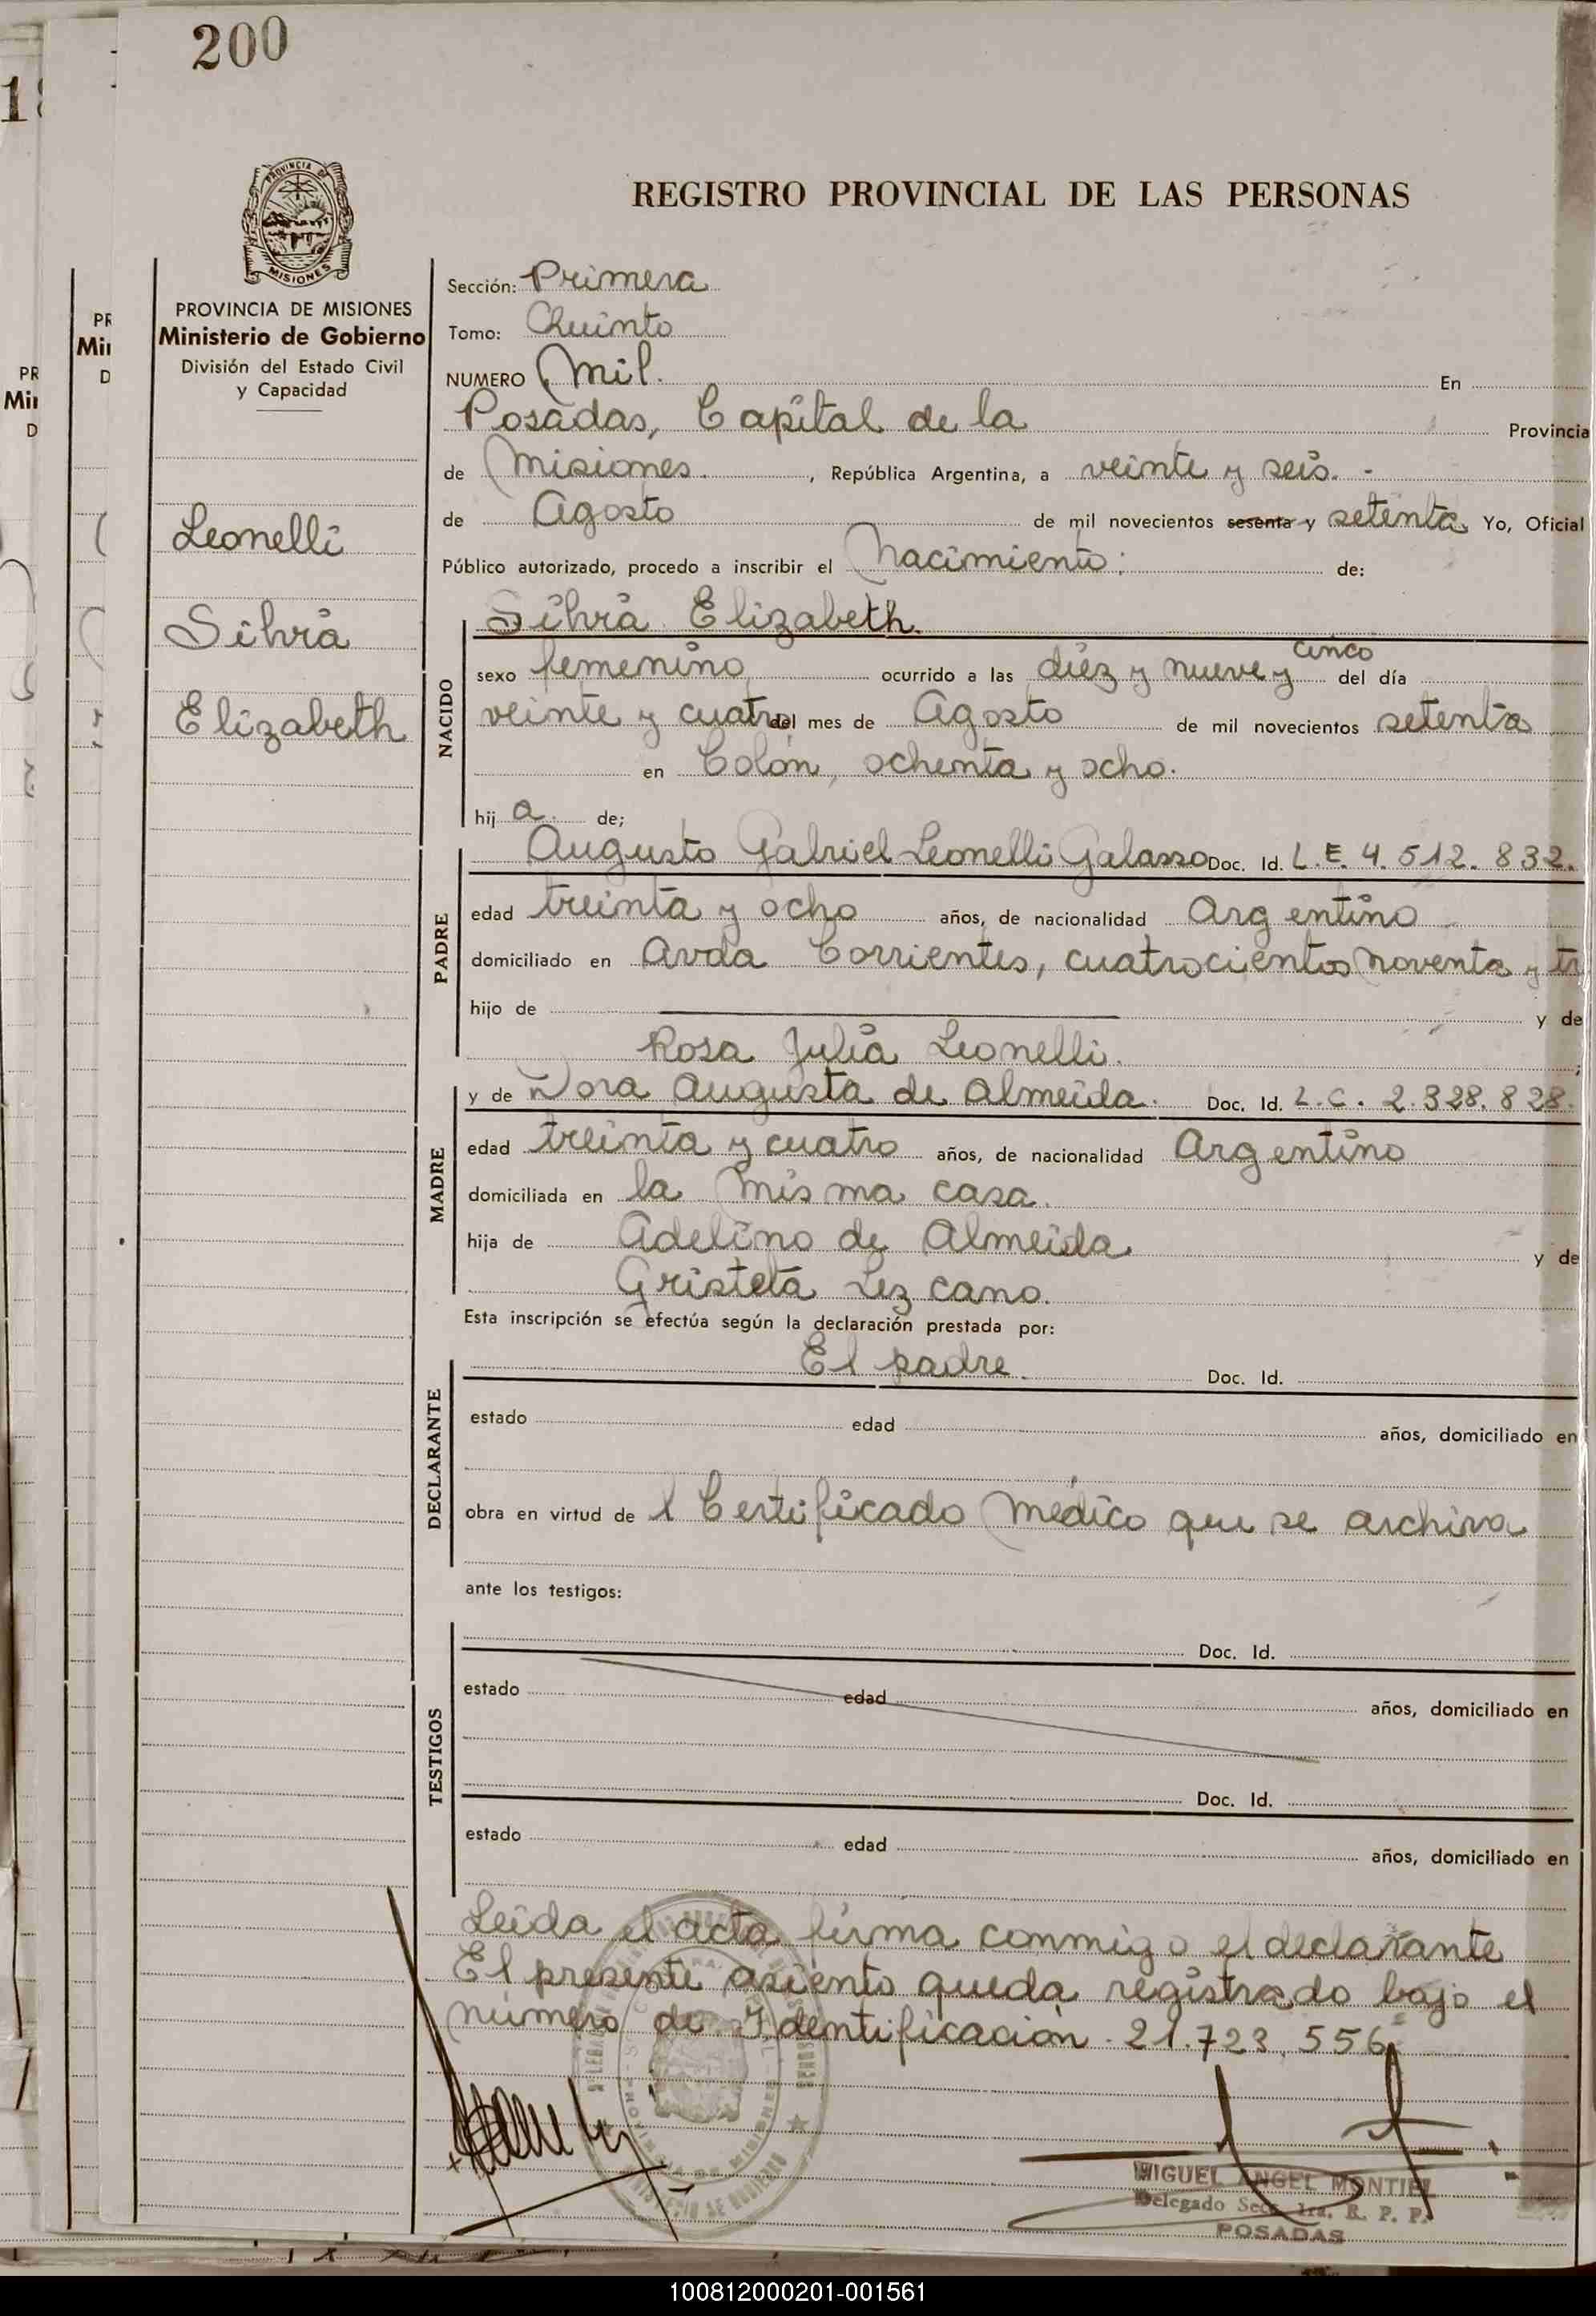 200
REGISTRO PROVINCIAL DE LAS PERSONAS
PROVINCIA DE MISIONES
Ministerio de Gobierno
División del Estado Civil
y Capacidad
Leonelli
Silvia
Elizabeth
Sección: Primera
Tomo: Quinto
NUMERO mil. En
Posadas, Capital de la Provincia
de Misiones. , República Argentina, a veinte y seis. -
de Agosto de mil novecientos sesenta y setenta Yo, Oficial
Público autorizado, procedo a inscribir el Nacimiento: de:
NACIDO
Silvia Elizabeth.
cinco
sexo femenino ocurrido a las diez y nueve y del día
veinte y cuatro del mes de Agosto de mil novecientos setenta
en Colón, ochenta y ocho.
hij a. de;
PADRE
Augusto Gabriel Leonelli Galasso Doc. Id. L.E. 4.512.832.
edad treinta y ocho años, de nacionalidad Argentino
domiciliado en Avda Corrientes, cuatrocientos noventa y tr
hijo de y de
Rosa Julia Leonelli. ;
MADRE
y de Dora Augusta de Almeida. Doc. Id. L.C. 2.328.828.
edad treinta y cuatro años, de nacionalidad Argentino
domiciliada en la misma casa.
hija de Adelino de Almeida y de
Lezcano.
Esta inscripción se efectúa según la declaración prestada por:
DECLARANTE
El padre. Doc. Id.
estado edad años, domiciliado en
obra en virtud de l Certificado Médico que se archiva
ante los testigos:
TESTIGOS
Doc. Id.
estado edad años, domiciliado en
Doc. Id.
estado edad años, domiciliado en
Leida el acta firma conmigo el declarante
El presente asiento queda registrado bajo el
número de Identificación. 21.723.556
MIGUEL ANGEL MONTIEL
Delegado Secc. 1ra. R. P. P.
POSADAS
100812000201-001561